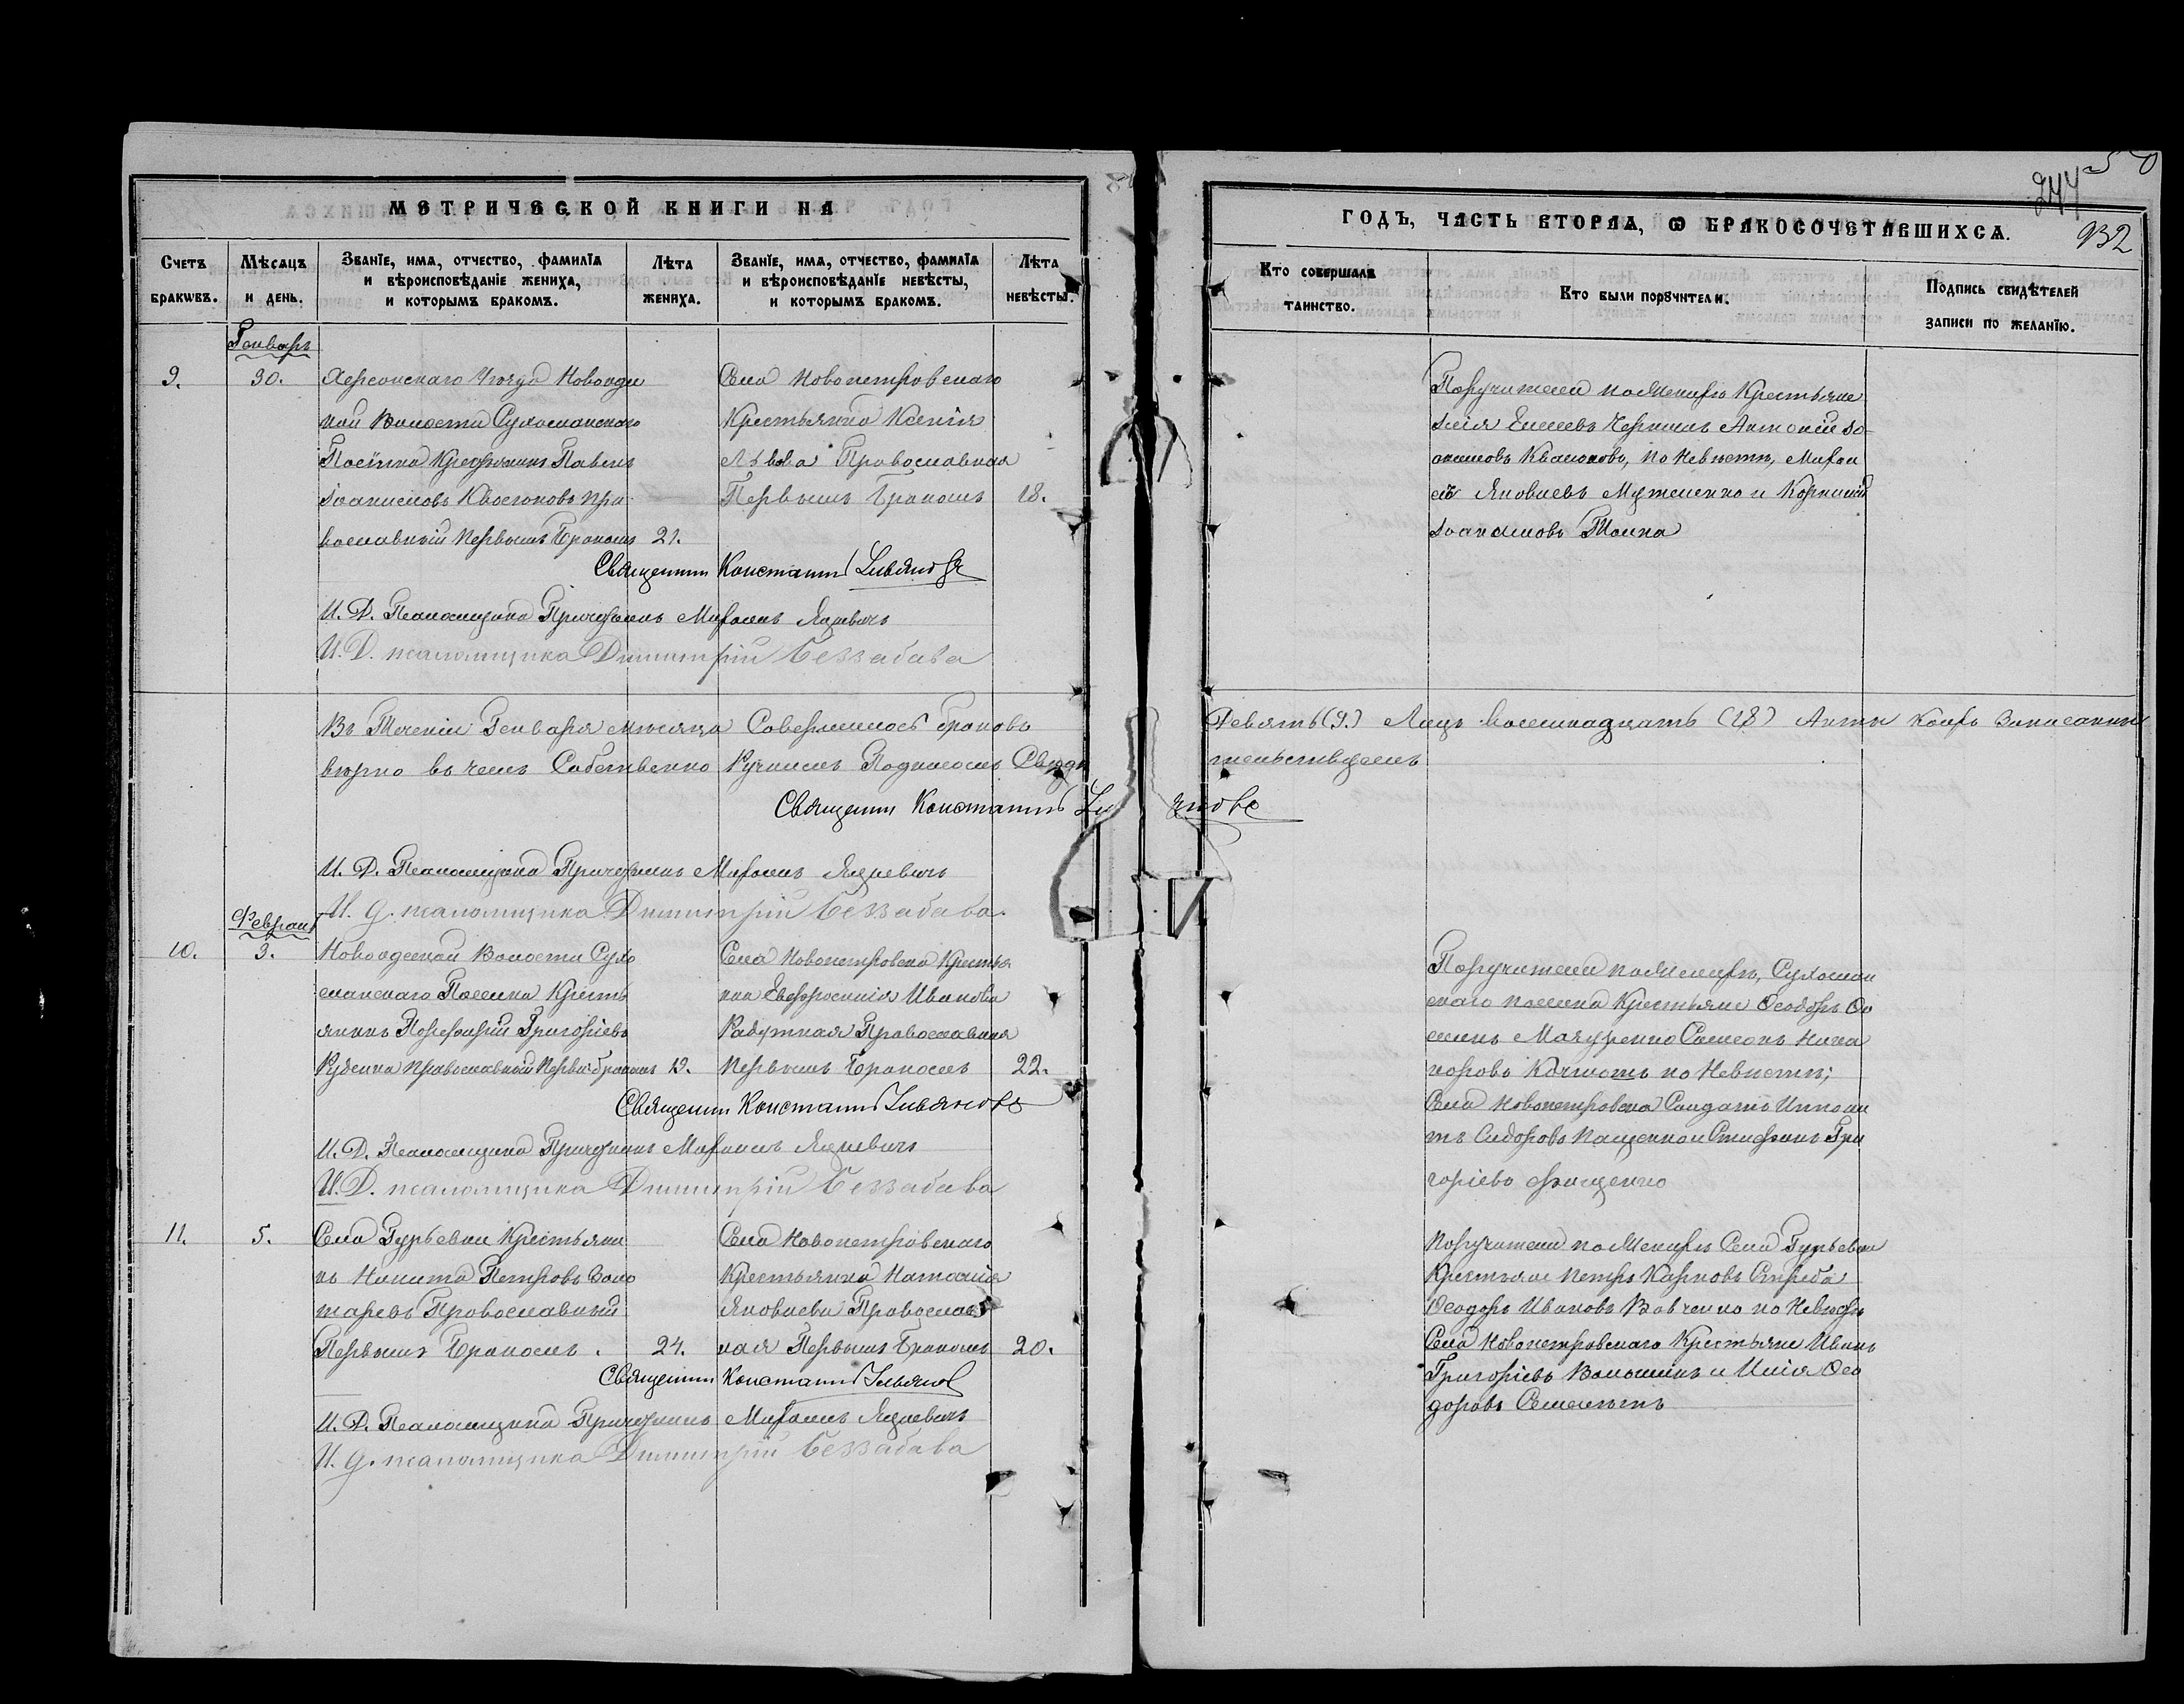 МЕТРИЧЕСКОЙ КНИГИ НА
Счетъ бракѡвъ.
Мѣсяцъ и день.
Званїе, имѧ, отчество, фамилїѧ и вѣроисповѣданїе жениха, и которымъ бракомъ.
Лѣта жениха.
Званїе, имѧ, отчество, фамилїѧ и вѣроисповѣданїе невѣсты, и которымъ бракомъ.
Лѣта невѣсты.
Генварь
9. 30.
Херсонскаго Уѣзда Новооде
кой Волости Сухоеланскаго
Поселка Крестьянинъ Павелъ
Іоанновъ пра
вославный первымъ бракомъ 21.
Села Новопетровскаго
Крестьянка Ксенія
Львова Православная
Первымъ бракомъ 18.
Священникъ Константинъ
И. Д. Псаломщика Михаилъ
И. Д. псаломщика Димитрій Беззабава
Въ теченіи Генваря мѣсяца Совершилось браковъ
вѣрно въ чемъ Собственно Ручнымъ Подписомъ Свидѣ
Священникъ Константинъ
И. Д. Псаломщика Михаилъ
И. д. псаломщика Димитрій Беззабава.
Февраль
10. 3.
Новоодеской Волости Сухо
еланскаго Поселка Кресть
янинъ Порфирій Григоріевъ
Руденко Православный Первы: бракомъ 19.
Села Новопетровска Крестья
нка Евфросинія Иванова
Радутная Православная
Первымъ бракомъ 22.
Священникъ Константинъ
И. Д. Псаломщика Михаилъ
И. Д. псаломщика Димитрій Беззабава
11. 5.
Села Гурьевки Крестьяни
нъ Никита Петровъ Золо
таревъ Православный
Первымъ бракомъ. 24.
Села Новопетровскаго
Крестьянка Наталія
Яковлева Православ
ная Первымъ бракомъ 20.
Священникъ Константинъ
И. Д. Псаломщика Михаилъ
И. д. псаломщика Димитрій Беззабава
244
50
932
ГОДЪ, ЧАСТЬ ВТОРАѦ, Ѡ БРАКОСОЧЕТАВШИХСѦ.
Кто совершалъ таинство.
Кто были порꙋчители.
Подпись свидѣтелей записи по желанїю.
Поручители по Женихѣ Крестьяне
Илія Елисеевъ Антоній Іо
анновъ, по Невѣстѣ, Михаи
лъ Яковлевъ и Корнилій
Іоанновъ
Девять (9.) Лицъ восемнадцать (18) Акты коихъ записаны
тельствуемъ
Поручители по Женихѣ, Сухоелан
скаго поселка Крестьяне Ѳеодоръ
Самсонъ Ника
норовъ по Невѣстѣ;
Села Новопетровска Солдатъ Ипполи
тъ Сидоровъ Пащенко и Стефанъ Гри
горіевъ
Поручители по Женихѣ Села Гурьевки
Крестьяне Петръ Карповъ
Ѳеодоръ Ивановъ Вовченко по Невѣстѣ
Села Новопетровскаго Крестьяне Иванъ
Григоріевъ Волошинъ и Илія Ѳео
доровъ